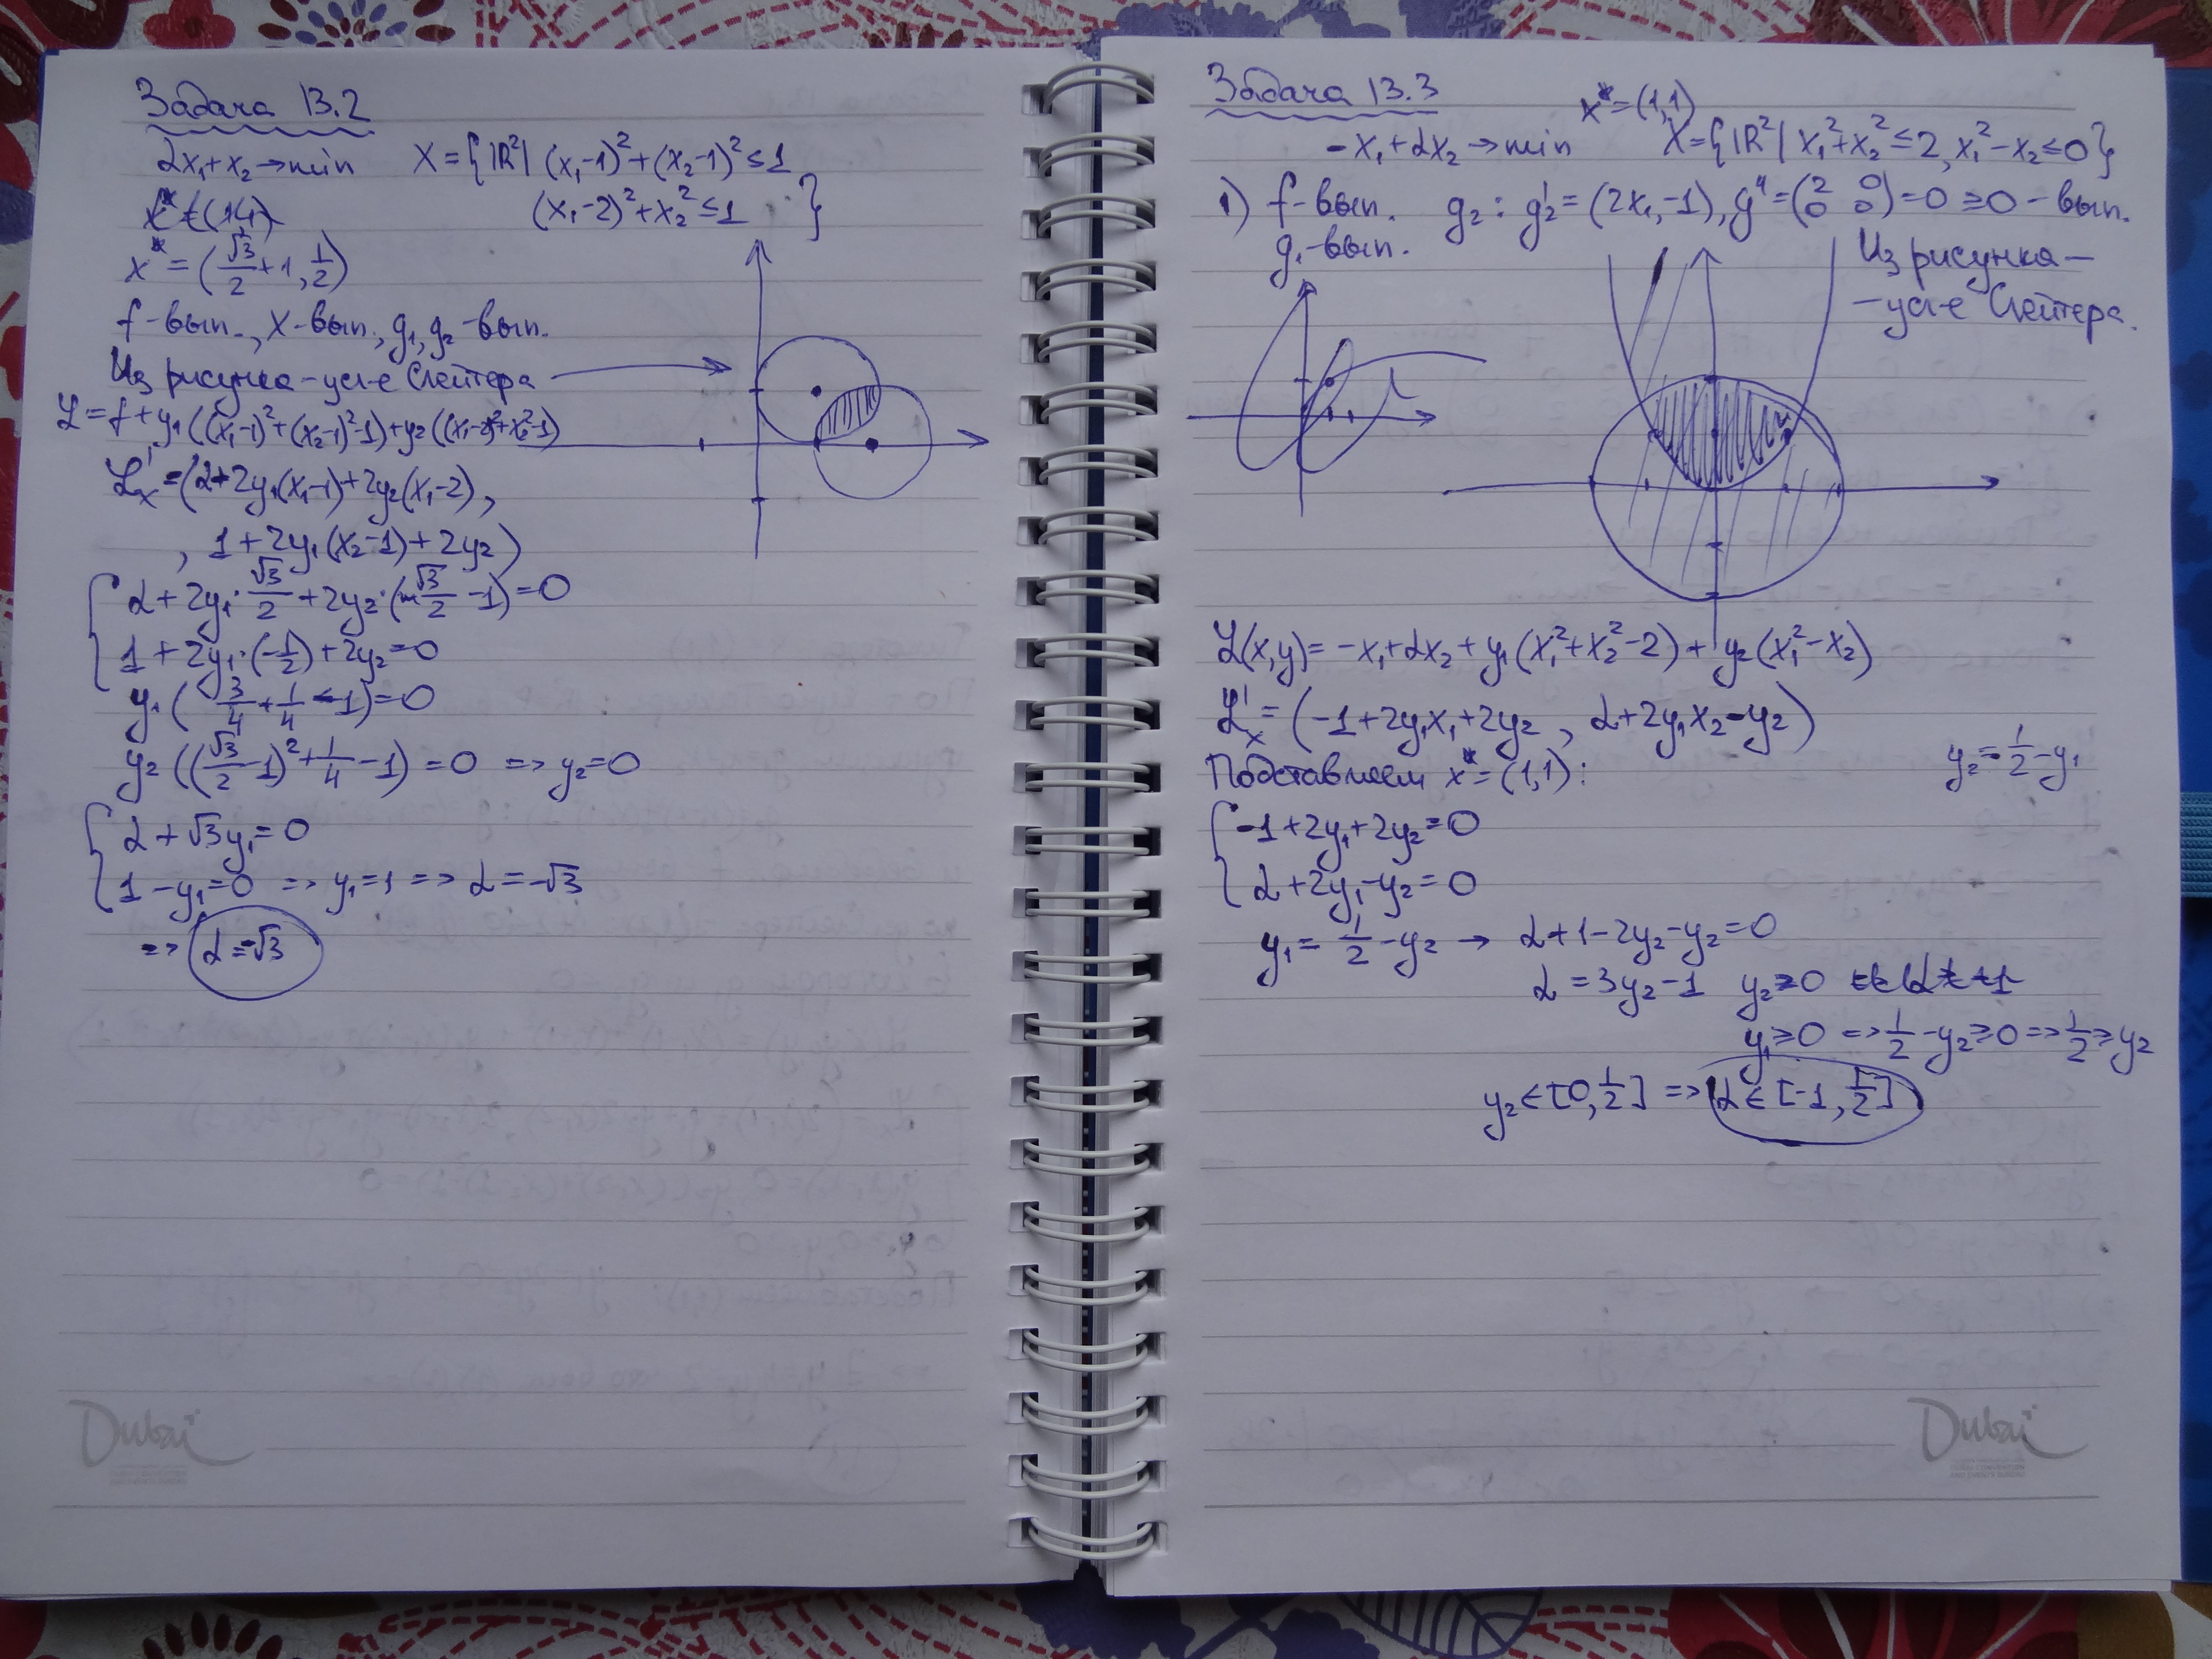 Задача 13.2
αx₁+x₂→min X={ℝ²| (x₁-1)²+(x₂-1)²≤1
(x₁-2)²+x₂²≤1 }
x*=(√3/2+1, 1/2)
f-вып., X-вып., g₁, g₂-вып.
Из рисунка-усл-е Слейтера
ℒ=f+y₁((x₁-1)²+(x₂-1)²-1)+y₂((x₁-2)²+x₂²-1)
ℒ'ₓ=(α+2y₁(x₁-1)+2y₂(x₁-2),
, 1+2y₁(x₂-1)+2y₂)
{ α+2y₁·√3/2+2y₂·(√3/2-1)=0
1+2y₁·(-1/2)+2y₂=0
y₁(3/4+1/4-1)=0
y₂((√3/2-1)²+1/4-1)=0 => y₂=0
{ α+√3y₁=0
1-y₁=0 => y₁=1 => α=-√3
=> α=-√3
Задача 13.3
x*=(1,1)
-x₁+αx₂→min X={ℝ²| x₁²+x₂²≤2, x₁²-x₂≤0}
1) f-вып. g₂: g₂'=(2x₁,-1), g''=(2 0 0 0)=0≥0-вып.
g₁-вып.
Из рисунка-
-усл-е Слейтера.
ℒ(x,y)=-x₁+αx₂+y₁(x₁²+x₂²-2)+y₂(x₁²-x₂)
ℒ'ₓ=(-1+2y₁x₁+2y₂, α+2y₁x₂-y₂)
Подставляем x*=(1,1): y₂=1/2-y₁
{ -1+2y₁+2y₂=0
α+2y₁-y₂=0
y₁=1/2-y₂ → α+1-2y₂-y₂=0
α=3y₂-1 y₂≥0
y₁≥0 => 1/2-y₂≥0 => 1/2≥y₂
y₂∈[0,1/2] => α∈[-1,1/2]
Dubai
Dubai